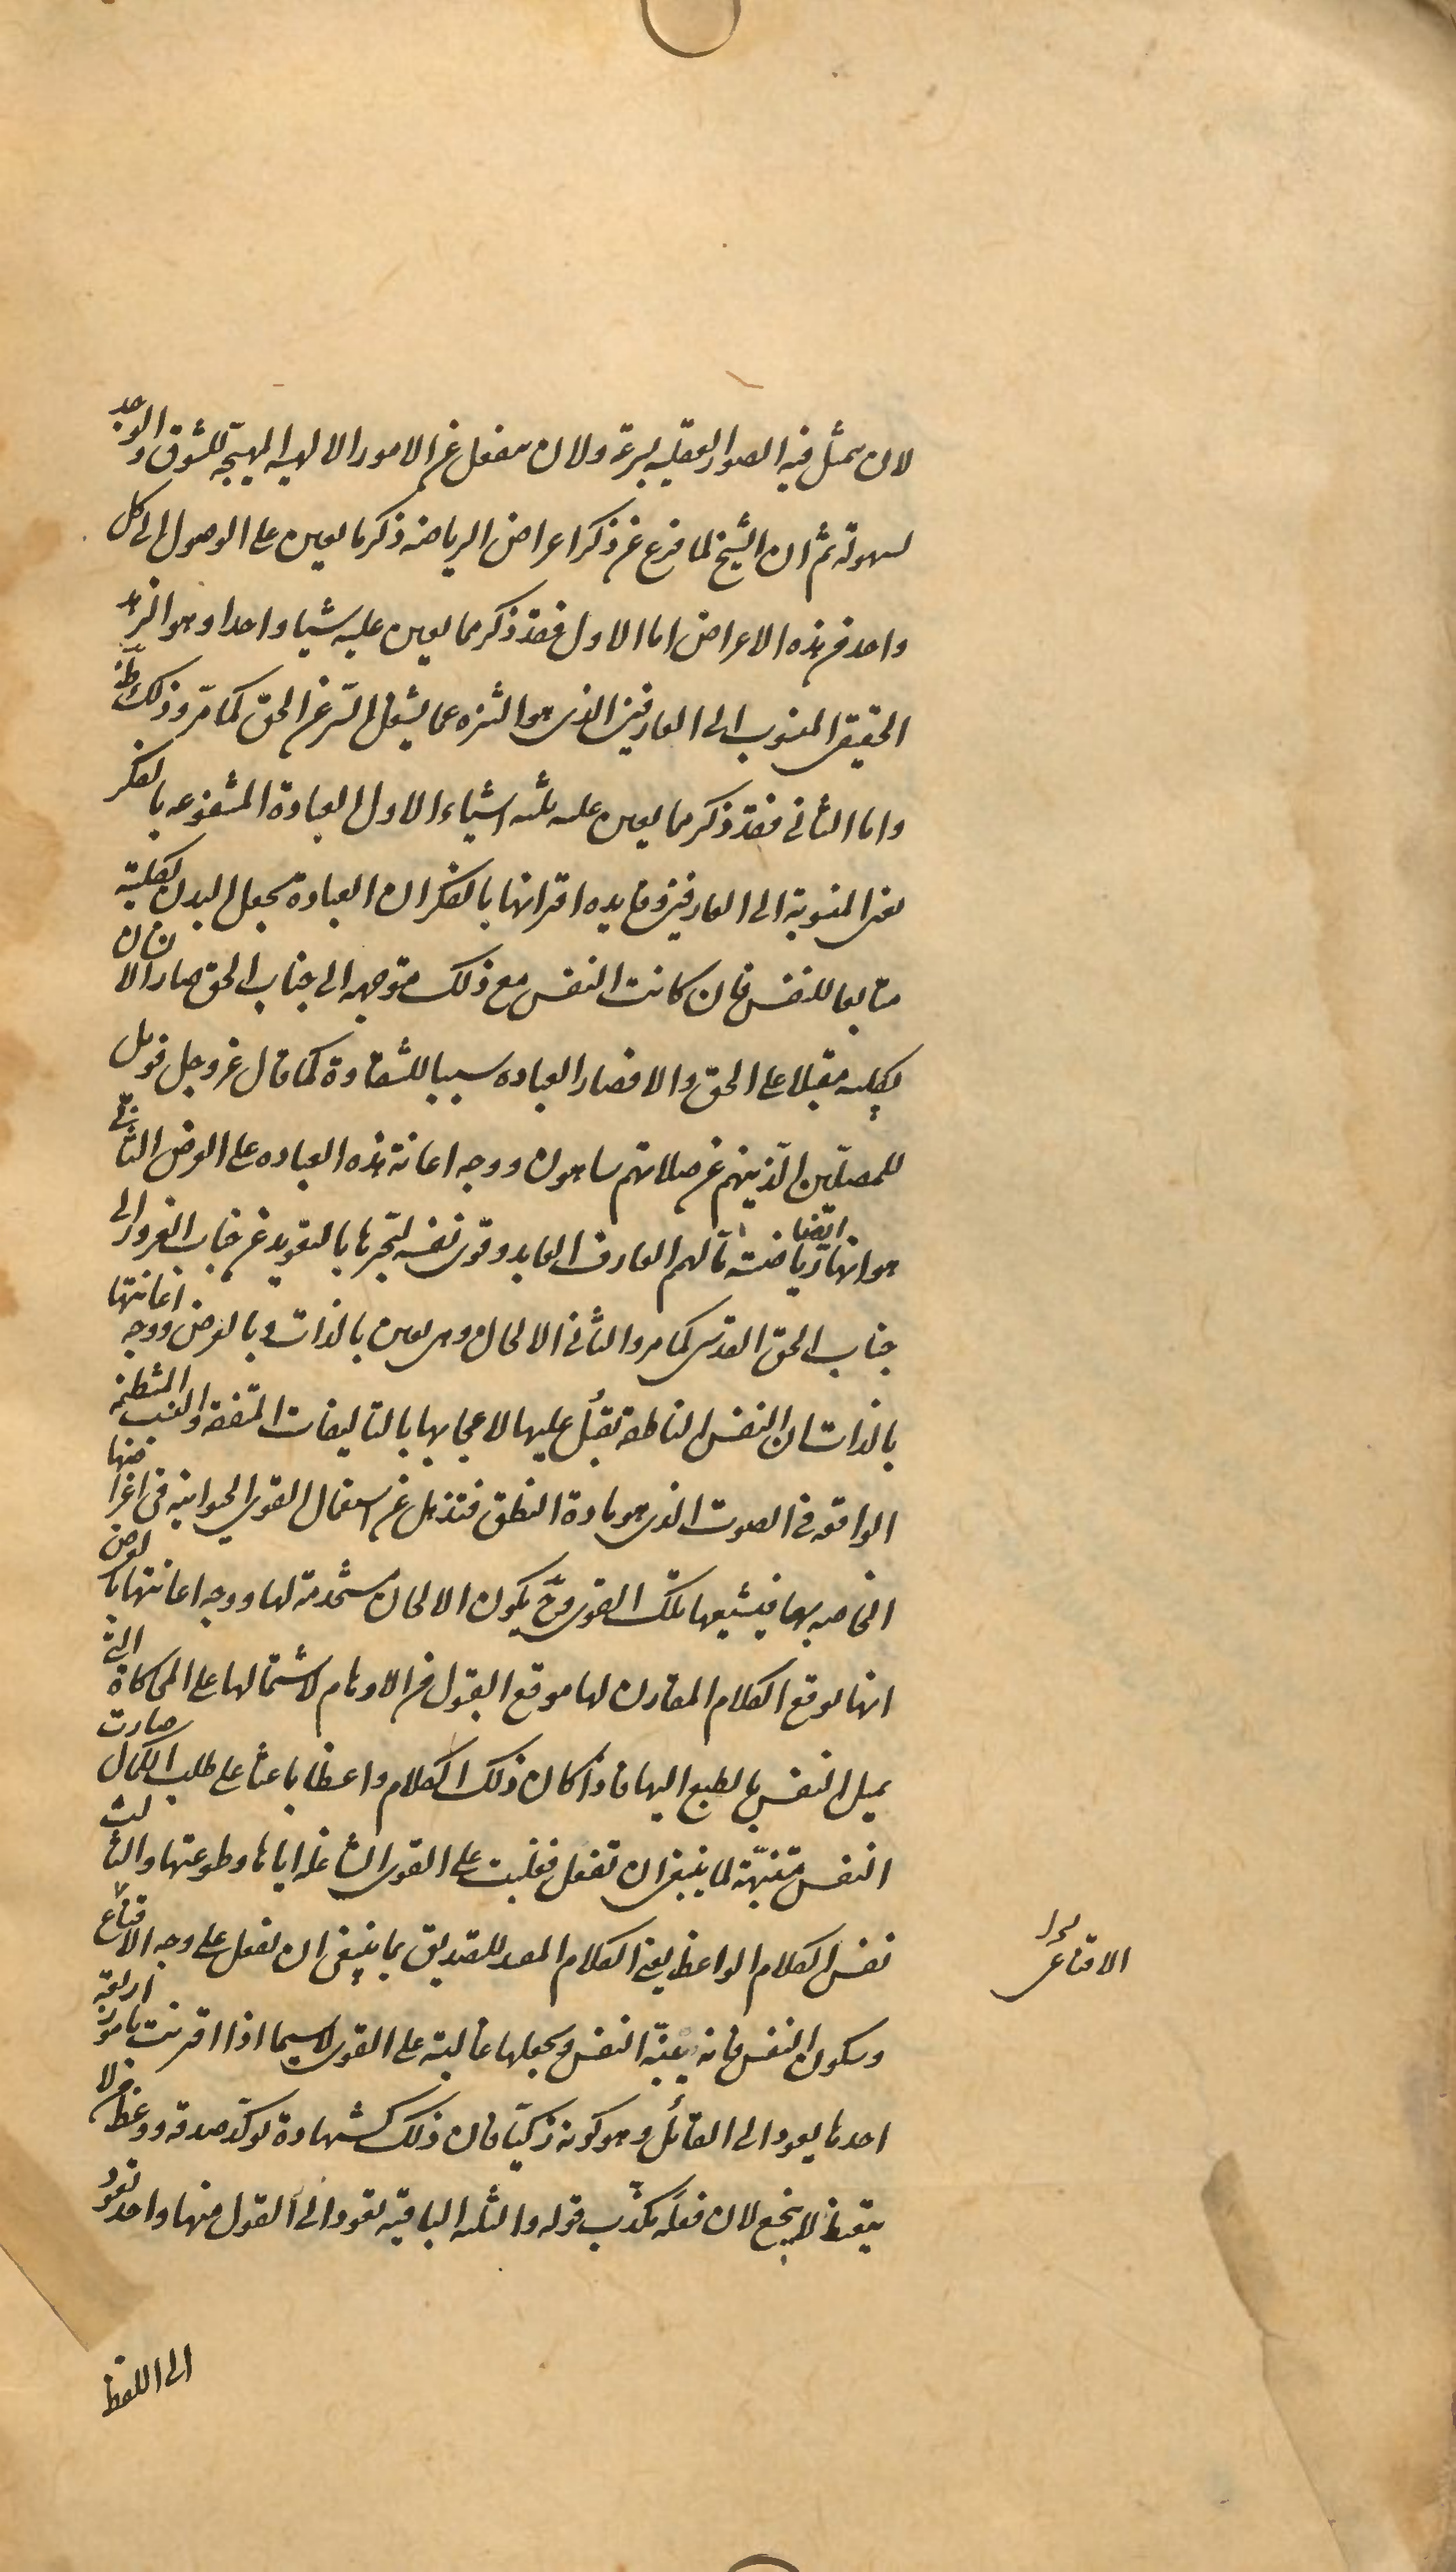 لان يتمثل فيه الصور العقليه بسرعة ولان ينفعل عن الامور الالهيه المهيجة للشوق والوجد
بسهولة ثم ان الشيخ لما فرغ عن ذكر اغراض الرياضه ذكر ما يعين على الوصول الى كل
واحد من هذه الاغراض اما الاول فقد ذكر مما يعين عليه شيا واحدا وهو الزهد
الحقيقى المنسوب الى العارفين الذى هو التنزه عما يشغل السّر عن الحق كما مرّ وذلك ظ
واما الثانى فقد ذكر مما يعين عليه ثلثه اشياء الاول العبادة المشفوعه بالفكر
يعنى المنسوبة الى العارفين وفايده اقترانها بالفكر ان العبادة تجعل البدن بكليته
متابعا للنفس فان كانت النفس مع ذلك متوجهه الى جناب الحق صار الانسان
بكليته مقبلا على الحق والا فصار العباده سببا للشقاوة كما قال عز وجل فويل
للمصلّين الّذينهم عن صلاتهم ساهون ووجه اعانة هذه العباده على الغرض الثانى
هو انها ايضا رياضة ما لهم العارف العابد وقوى نفسه ليجرها بالتعويد عن جناب الغرور الى
جناب الحق القدس كما مر والثانى الالحان وهى يعين بالذات وبالعرض ووجه اعانتها
بالذات ان النفس الناطقه تقبُل عليها لاعجابها بالتاليفات المتفقه والنسب المنتظمه
الواقعه فى الصوت الذى هو مادة النطق فتذهل عن استعمال القوى الحيوانيه فى اغراضها
الخاصه بها فيشيعها تلك القوى وح يكون الالحان مستخدمة لها ووجه اعانتها بالعرض
انها توقع الكلام المقارن لها موقع القبول من الاوهام لاشتمالها على المحاكاة التى
تميل النفس بالطبع اليها فاذا كان ذلك الكلام واعظا باعثا على طلب الكمال صارت
النفس متنبهّة لما ينبغى ان تفعل فغلبت على القوى الشاغله اياها وطوعتها والثالث
نفس الكلام الواعظ يعنى الكلام المعد للتصديق بما ينبغى ان تفعل على وجه الاقناع
الاقناعى
وسكون النفس فانه ينبّه النفس ويجعلها غالبة على القوى لاسيما اذا اقترنت بامور اربعة
احدها يعود الى القائل وهو كونه زكيّا فان ذلك كشهادة توكّد صدقه ووعظ من لا
يتعظ لا ينجع لان فعلَه يكذّب قوله والثلثه الباقيه تعود الى القول منها واحد يعود
الى اللفظ